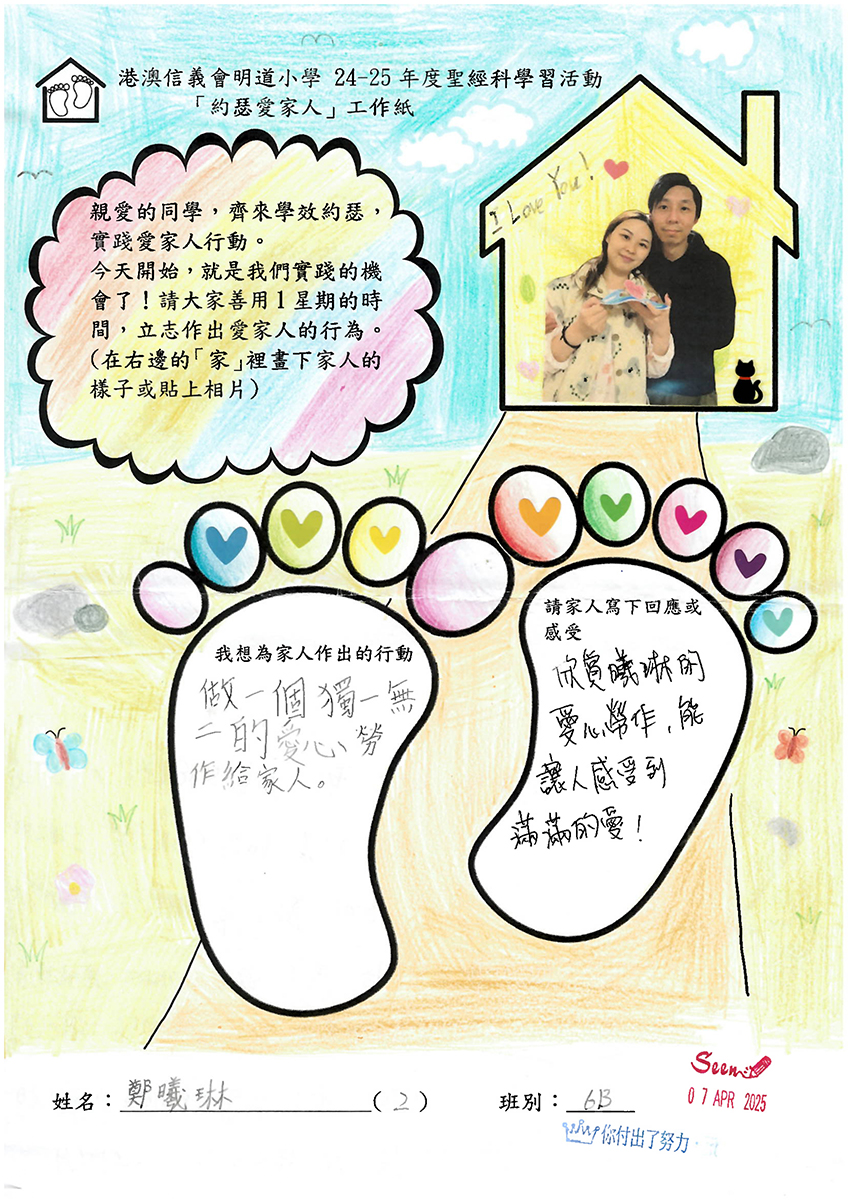 港澳信義會明道小學 24-25 年度聖經科學習活動
「約瑟愛家人」工作紙
親愛的同學，齊來學效約瑟，
實踐愛家人行動。
今天開始，就是我們實踐的機
會了！請大家善用1星期的時
間，立志作出愛家人的行為。
(在右邊的「家」裡畫下家人的
樣子或貼上相片)
I Love You!
我想為家人作出的行動
做一個獨一無
二的愛心勞
作給家人。
請家人寫下回應或
感受
欣賞曦琳的
愛心勞作,能
讓人感受到
滿滿的愛!
姓名：鄭曦琳 (2) 班別：6B
Seen
07 APR 2025
你付出了努力